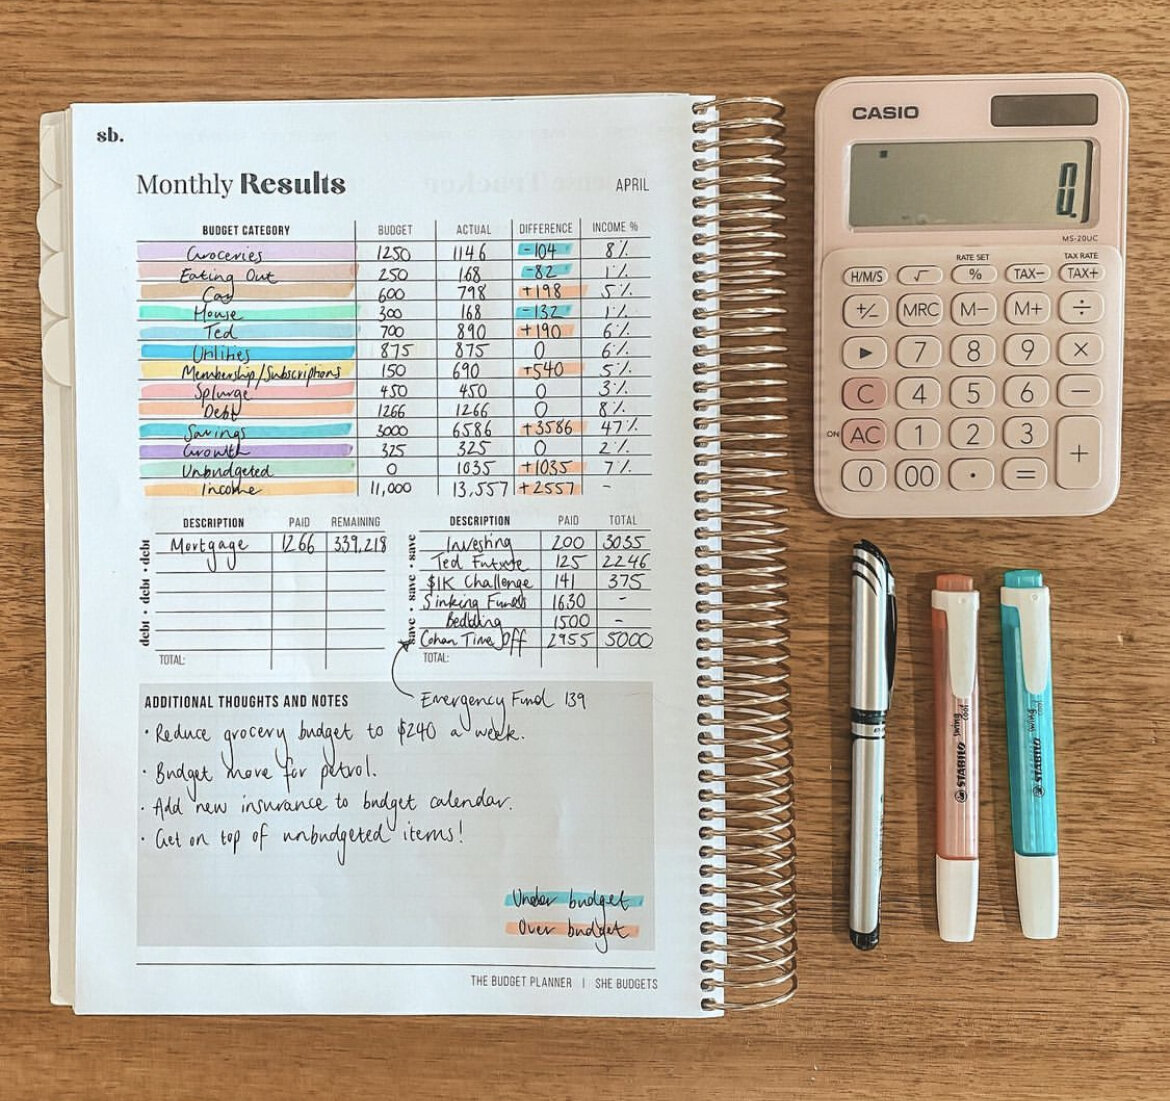 sb.
Monthly Results APRIL
BUDGET CATEGORY BUDGET ACTUAL DIFFERENCE INCOME %
Groceries 1250 1146 -104 8%
Eating Out 250 168 -82 1%
Car 600 798 +198 5%
House 300 168 -132 1%
Ted 700 890 +190 6%
Utilities 875 875 0 6%
Membership/Subscriptions 150 690 +540 5%
Splurge 450 450 0 3%
Debt 1266 1266 0 8%
Savings 3000 6586 +3586 47%
Growth 325 325 0 2%
Unbudgeted 0 1035 +1035 7%
Income 11,000 13,557 +2557 -
debt • debt • debt
DESCRIPTION PAID REMAINING
Mortgage 1266 339,218
TOTAL:
save • save • save
DESCRIPTION PAID TOTAL
Investing 200 3035
Ted Future 125 2246
$1K Challenge 141 375
Sinking Funds 1630 -
Bedding 1500 -
Cohan Time Off 2955 5000
TOTAL:
Emergency Fund 139
ADDITIONAL THOUGHTS AND NOTES
· Reduce grocery budget to $240 a week.
· Budget more for petrol.
· Add new insurance to budget calendar.
· Get on top of unbudgeted items!
Under budget
Over budget
THE BUDGET PLANNER | SHE BUDGETS
CASIO
0.
MS-20UC
RATE SET TAX RATE
H/M/S √ % TAX− TAX+
+/− MRC M− M+ ÷
▶ 7 8 9 ×
C 4 5 6 −
ON AC 1 2 3 +
0 00 · =
STABILO swing cool
STABILO swing cool